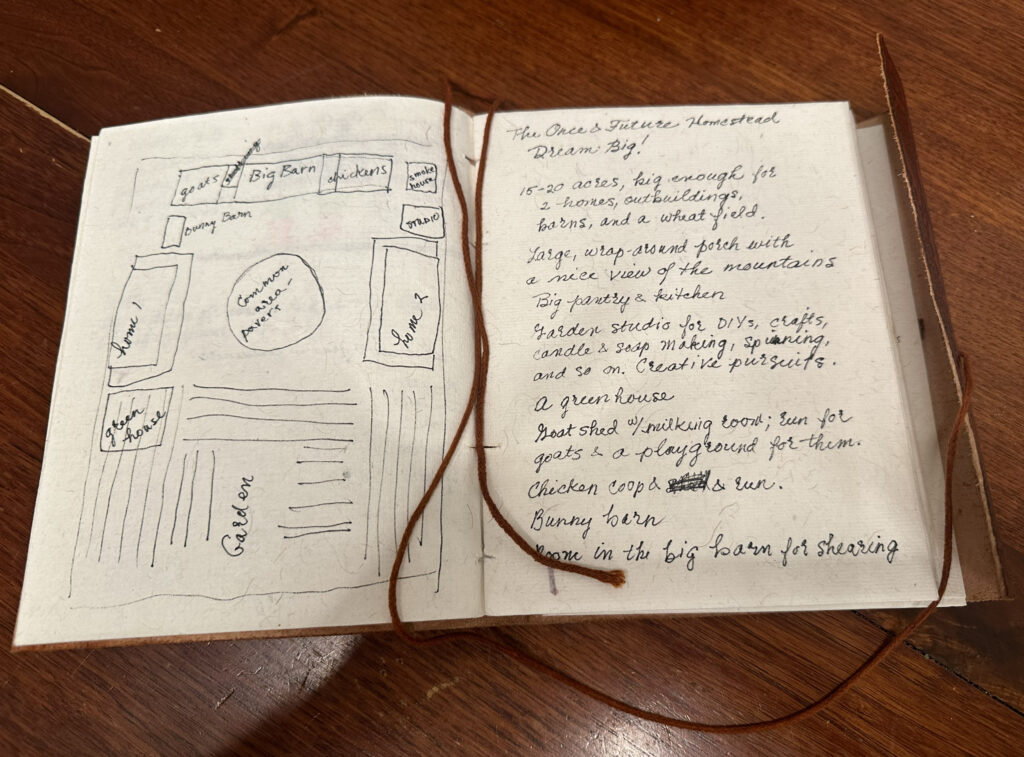 goats
Big Barn
chickens
smoke
house
Bunny Barn
STUDIO
home 1
Common
area -
pavers
home 2
green
house
Garden
The Once & Future Homestead
Dream Big!
15-20 acres, big enough for
2 homes, outbuildings,
barns, and a wheat field.
Large, wrap-around porch with
a nice view of the mountains
Big pantry & kitchen
Garden studio for DIYs, crafts,
candle & soap making, spinning,
and so on. Creative pursuits.
A greenhouse
Goat shed w/milking room; run for
goats & a playground for them.
Chicken coop & & run.
Bunny barn
Room in the big barn for shearing